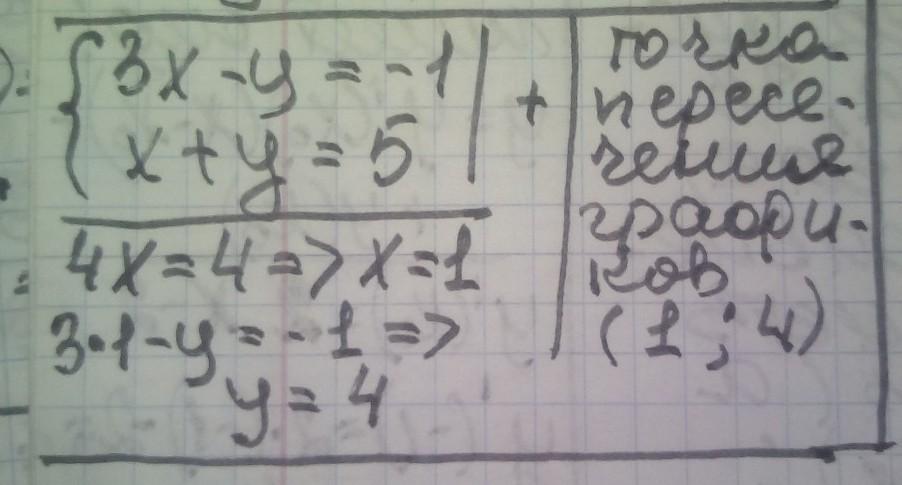 {3x - y = -1 | +
x + y = 5
4x = 4 => x = 1
3·1 - y = -1 =>
y = 4
точка
пересе-
чения
графи-
ков
(1; 4)